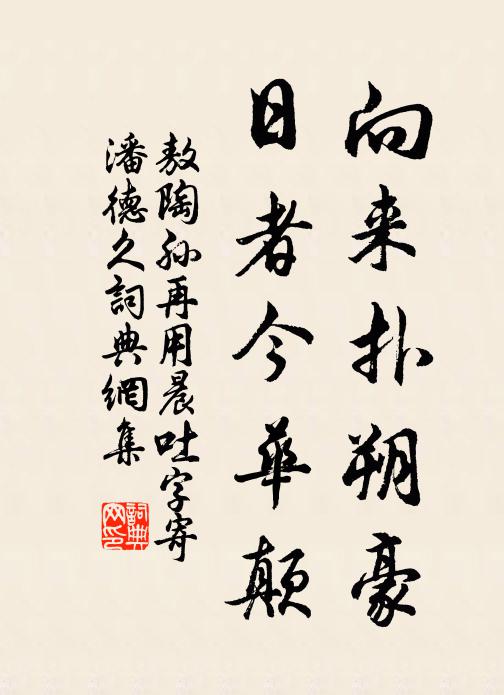 向来扑朔豪
日者今华颠
敖陶孙再用晨吐字寄
潘德久詞典網集
詞典
网印